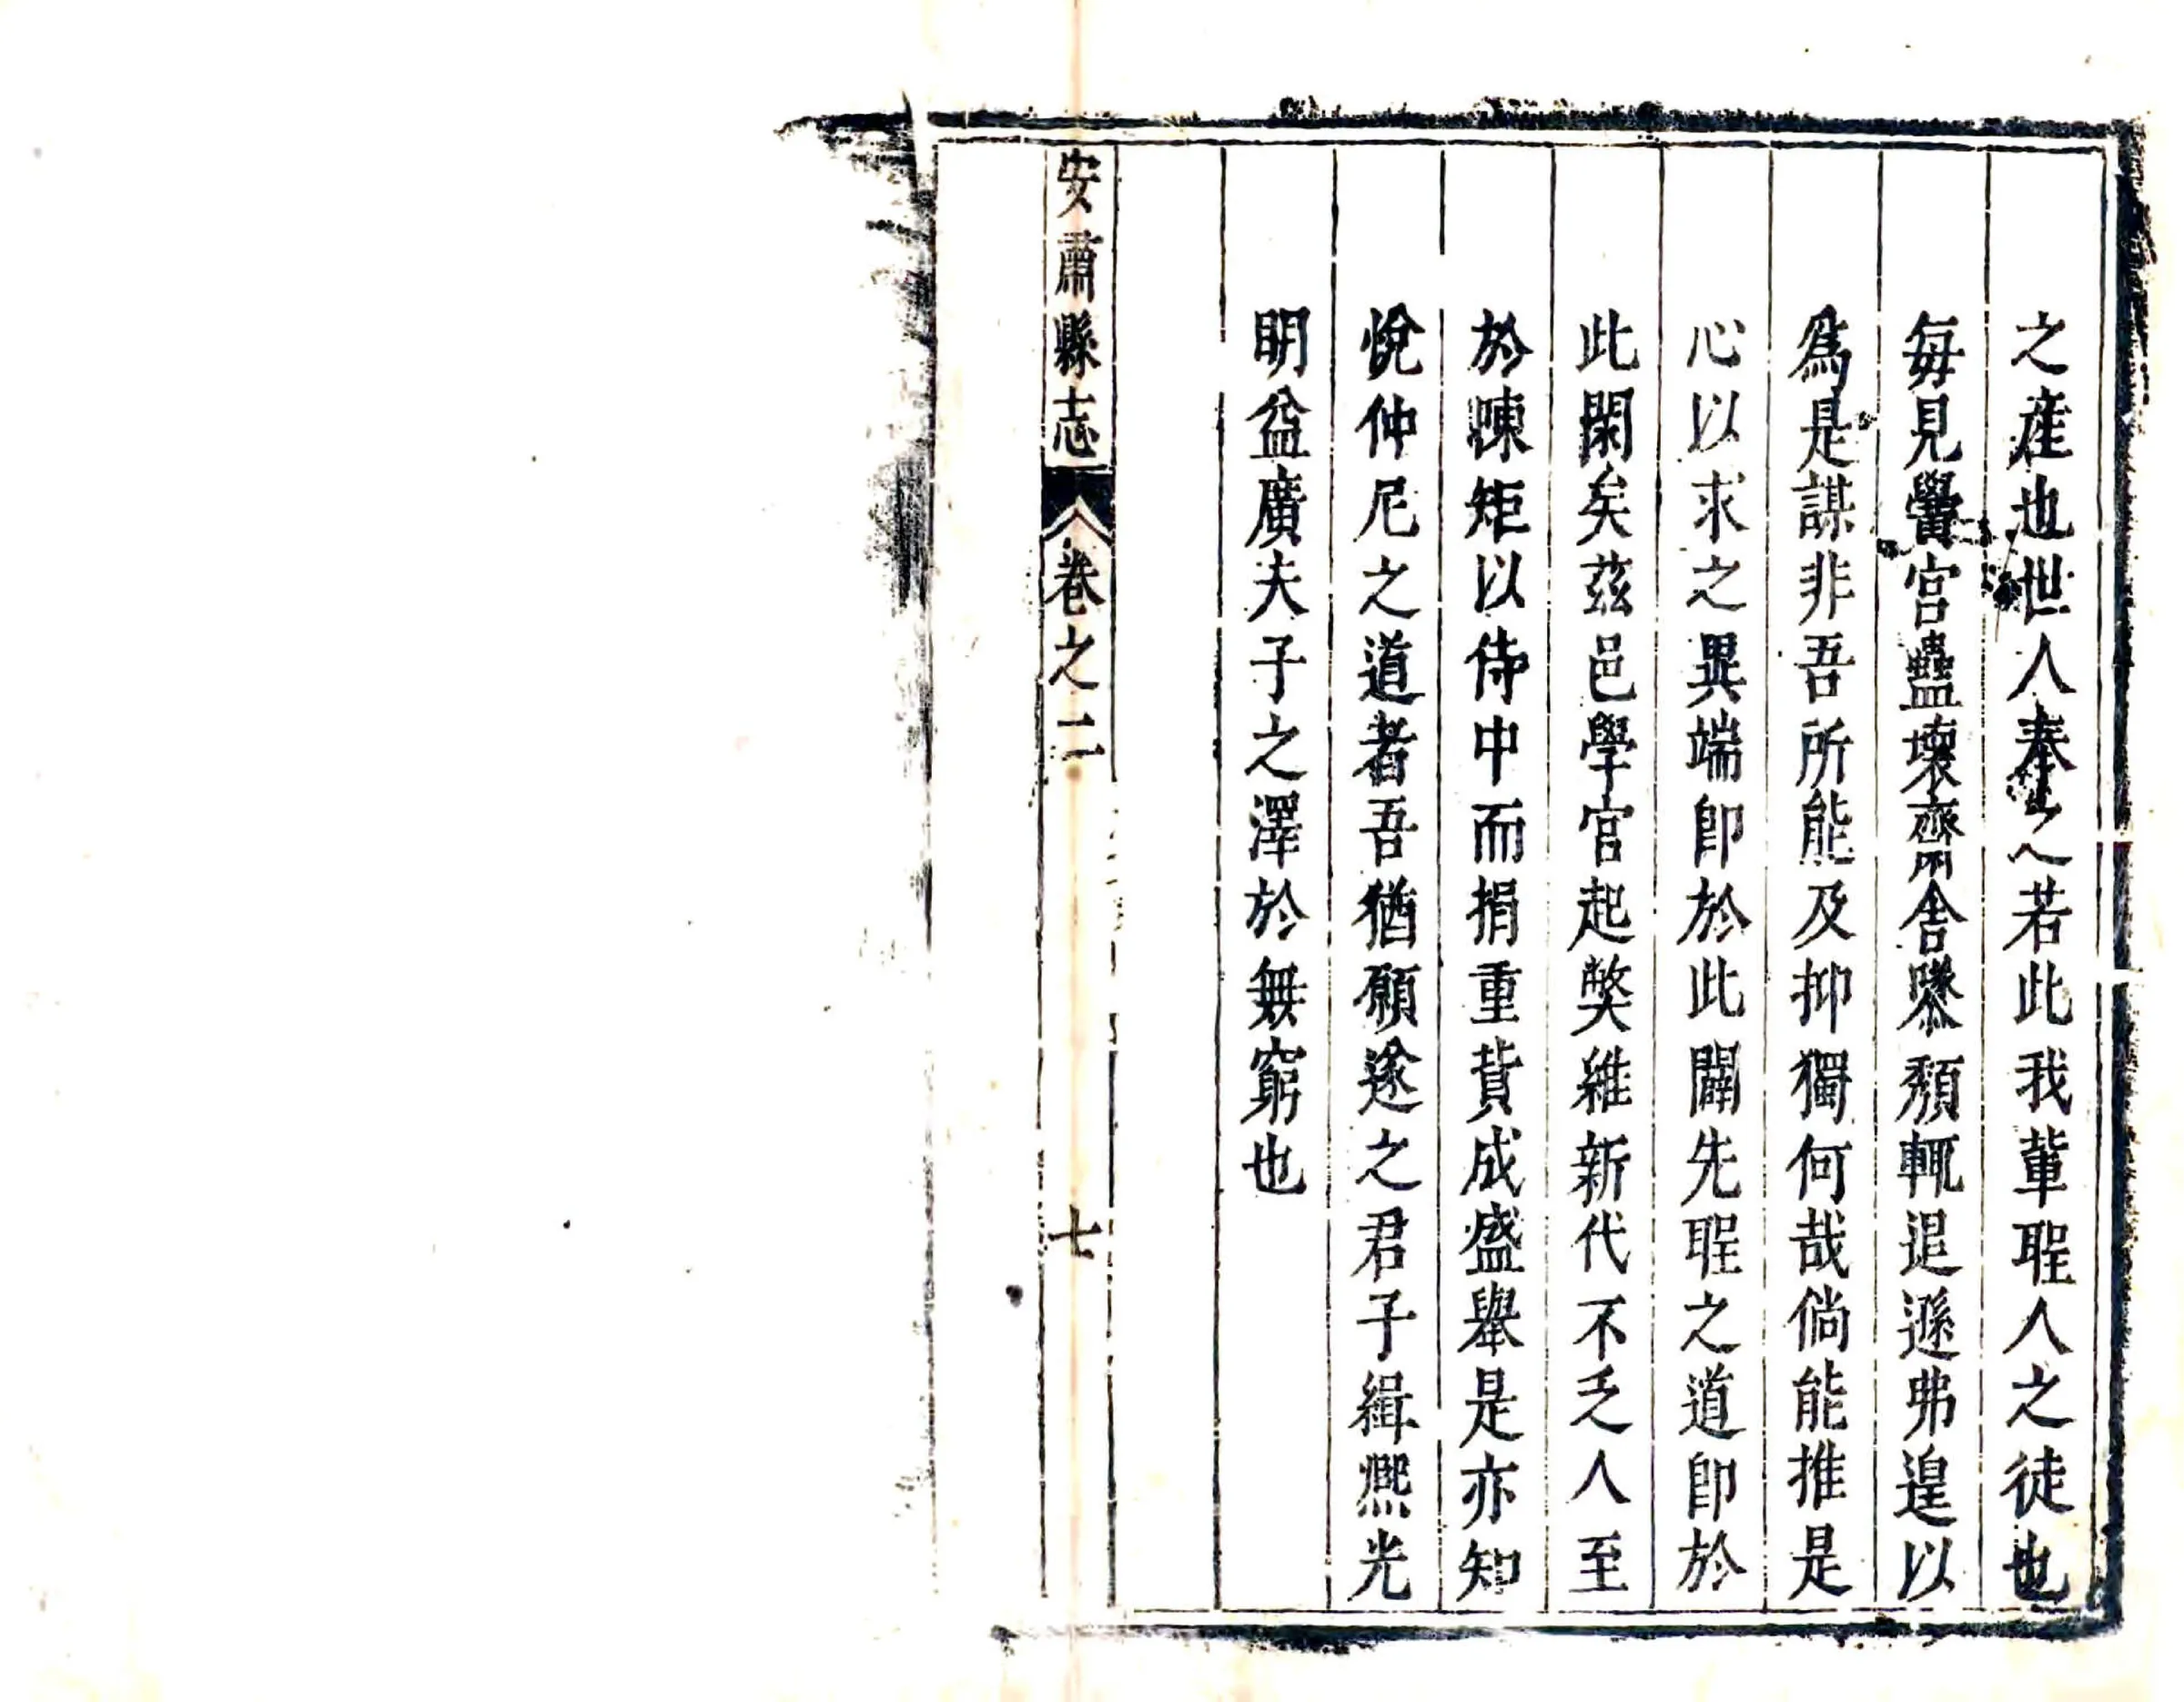 之産也世人奉之若此我輩聖人之徒也
每見黌宮蠱壞齋舍隳頽輒退遜弗遑以
爲是謀非吾所能及抑獨何哉倘能推是
心以求之異端卽於此闢先聖之道卽於
此閑矣茲邑學官起獘維新代不乏人至
於悚矩以侍中而捐重貲成盛舉是亦知
悅仲尼之道者吾猶願遂之君子緝熙光
明益廣夫子之澤於無窮也
安肅縣志 卷之二 七